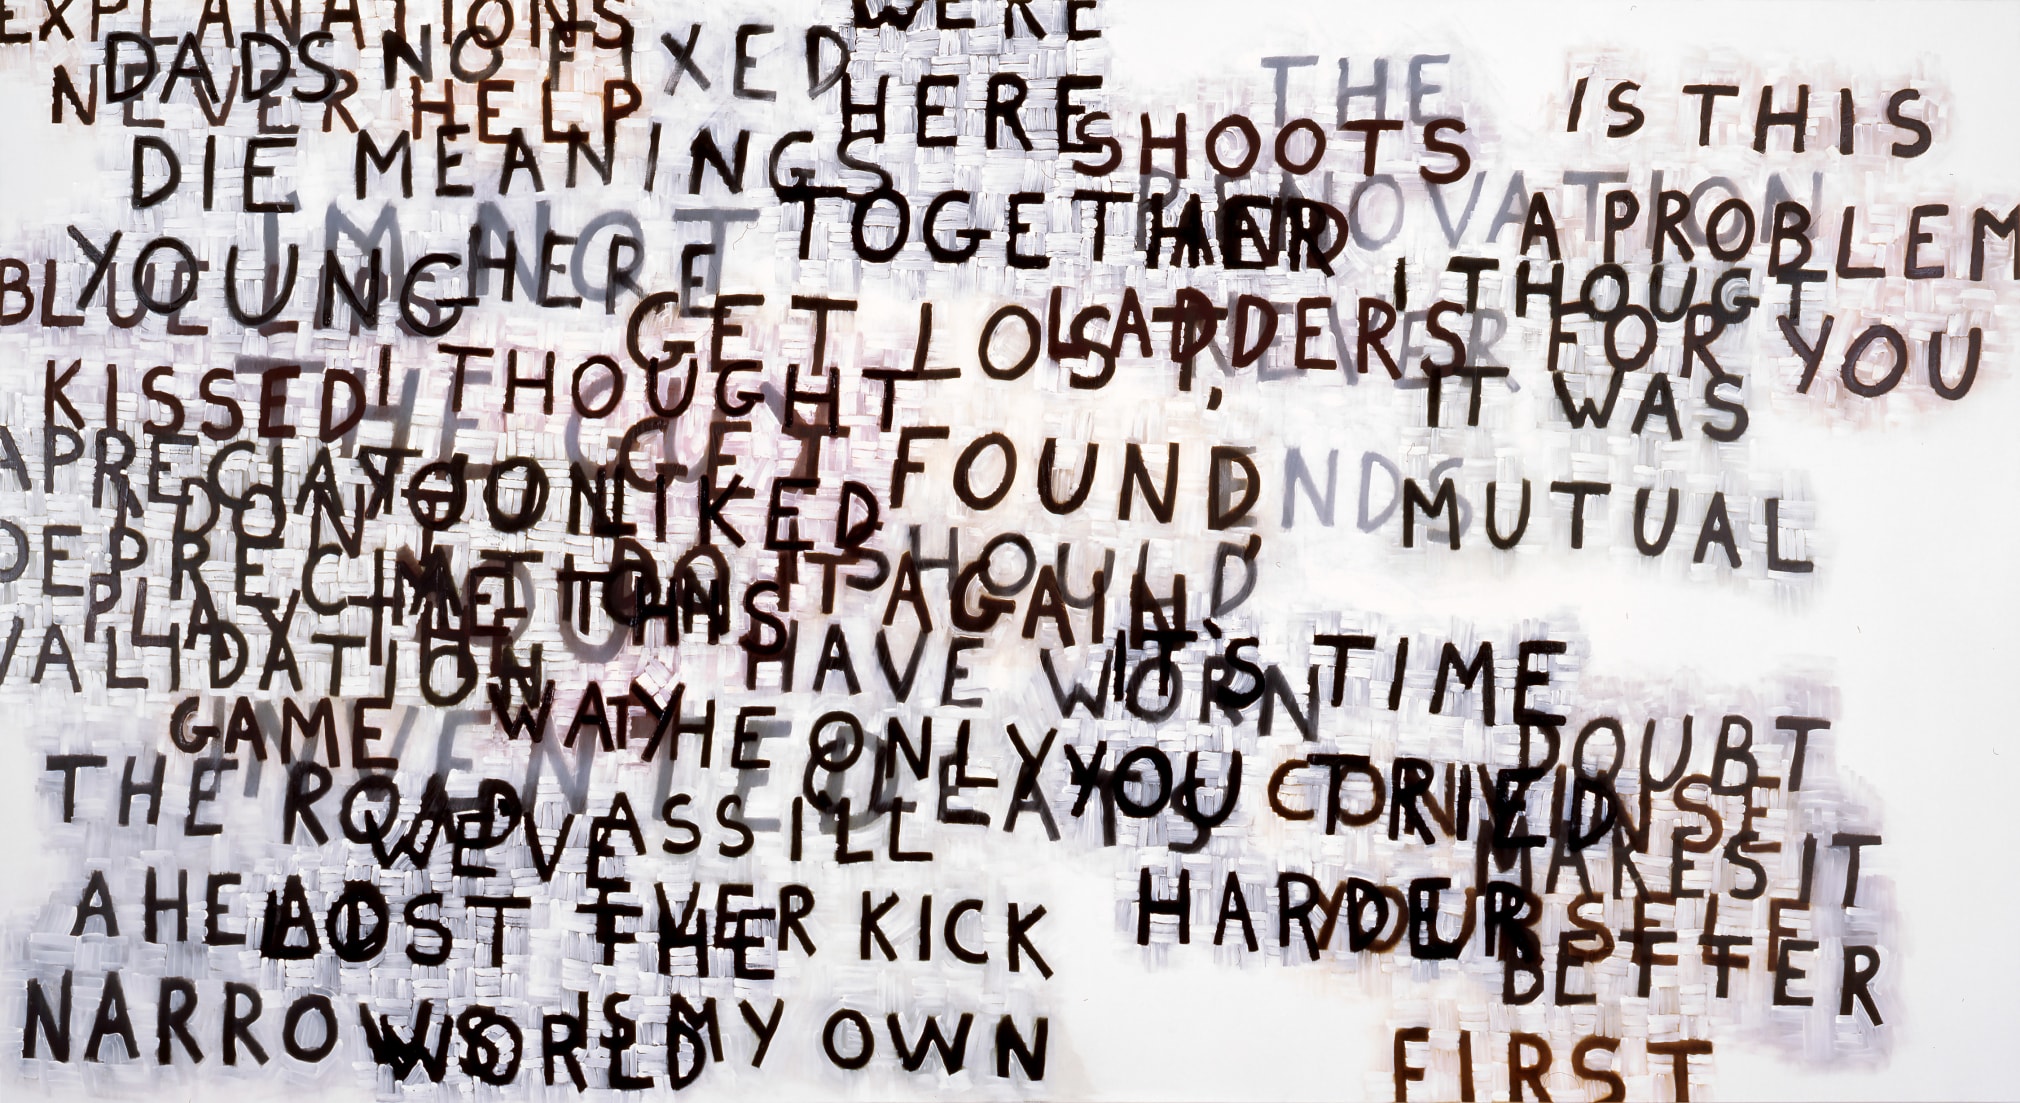 EXPLANATIONS
NEVER HELP
DADS
DIE
YOUNG
NO FIXED
MEANINGS
HERE
WERE
HERE
TOGETHER
THE
RENOVATION
NEVER
ENDS
SHOOTS
HARD
LADDERS
IS THIS
A PROBLEM
FOR YOU
I'M NOT
BLUE
KISSED
I THOUGHT
YOU LIKED
IT
THIS
WAY
GET LOST,
GET FOUND,
DO IT AGAIN
I THOUGT
IT WAS
MUTUAL
APRECIATION
DEPRECIATION
VALIDATION
DON
PLAY
THE
GAME
SHOULD
HAVE WORN
IT'S TIME
YOU TRIED
HARDER
DOUBT
MAKES IT
BETTER
CONVINSE
YOURSELF
FIRST
THE ROAD
AHEAD
NARROWS
WE'VE
LOST
THE
WORLD
THE ONLY
ASS I'LL
EVER KICK
IS MY OWN